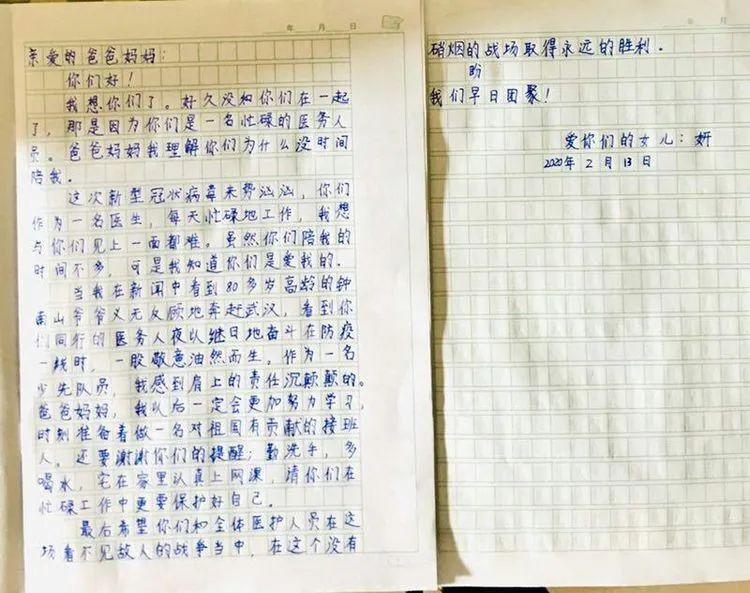 年 月 日
亲爱的爸爸妈妈：
你们好！
我想你们了。好久没和你们在一起
了，那是因为你们是一名忙碌的医务人
员。爸爸妈妈我理解你们为什么没时间
陪我。
这次新型冠状病毒来势汹汹，你们
作为一名医生，每天忙碌地工作，我想
与你们见上一面都难。虽然你们陪我的
时间不多，可是我知道你们是爱我的。
当我在新闻中看到80多岁高龄的钟
南山爷爷义无反顾地奔赴武汉，看到你
们同行的医务人夜以继日地奋斗在防疫
一线时，一股敬意油然而生。作为一名
少先队员，我感到肩上的责任沉颠颠的。
爸爸妈妈，我以后一定会更加努力学习，
时刻准备着做一名对祖国有贡献的接班
人。还要谢谢你们的提醒：勤洗手，多
喝水，宅在家里认真上网课，请你们在
忙碌工作中更要保护好自己。
最后希望你们和全体医护人员在这
场看不见敌人的战争当中，在这个没有
年 月
硝烟的战场取得永远的胜利。
盼
我们早日团聚！
爱你们的女儿：妍
2020年2月13日